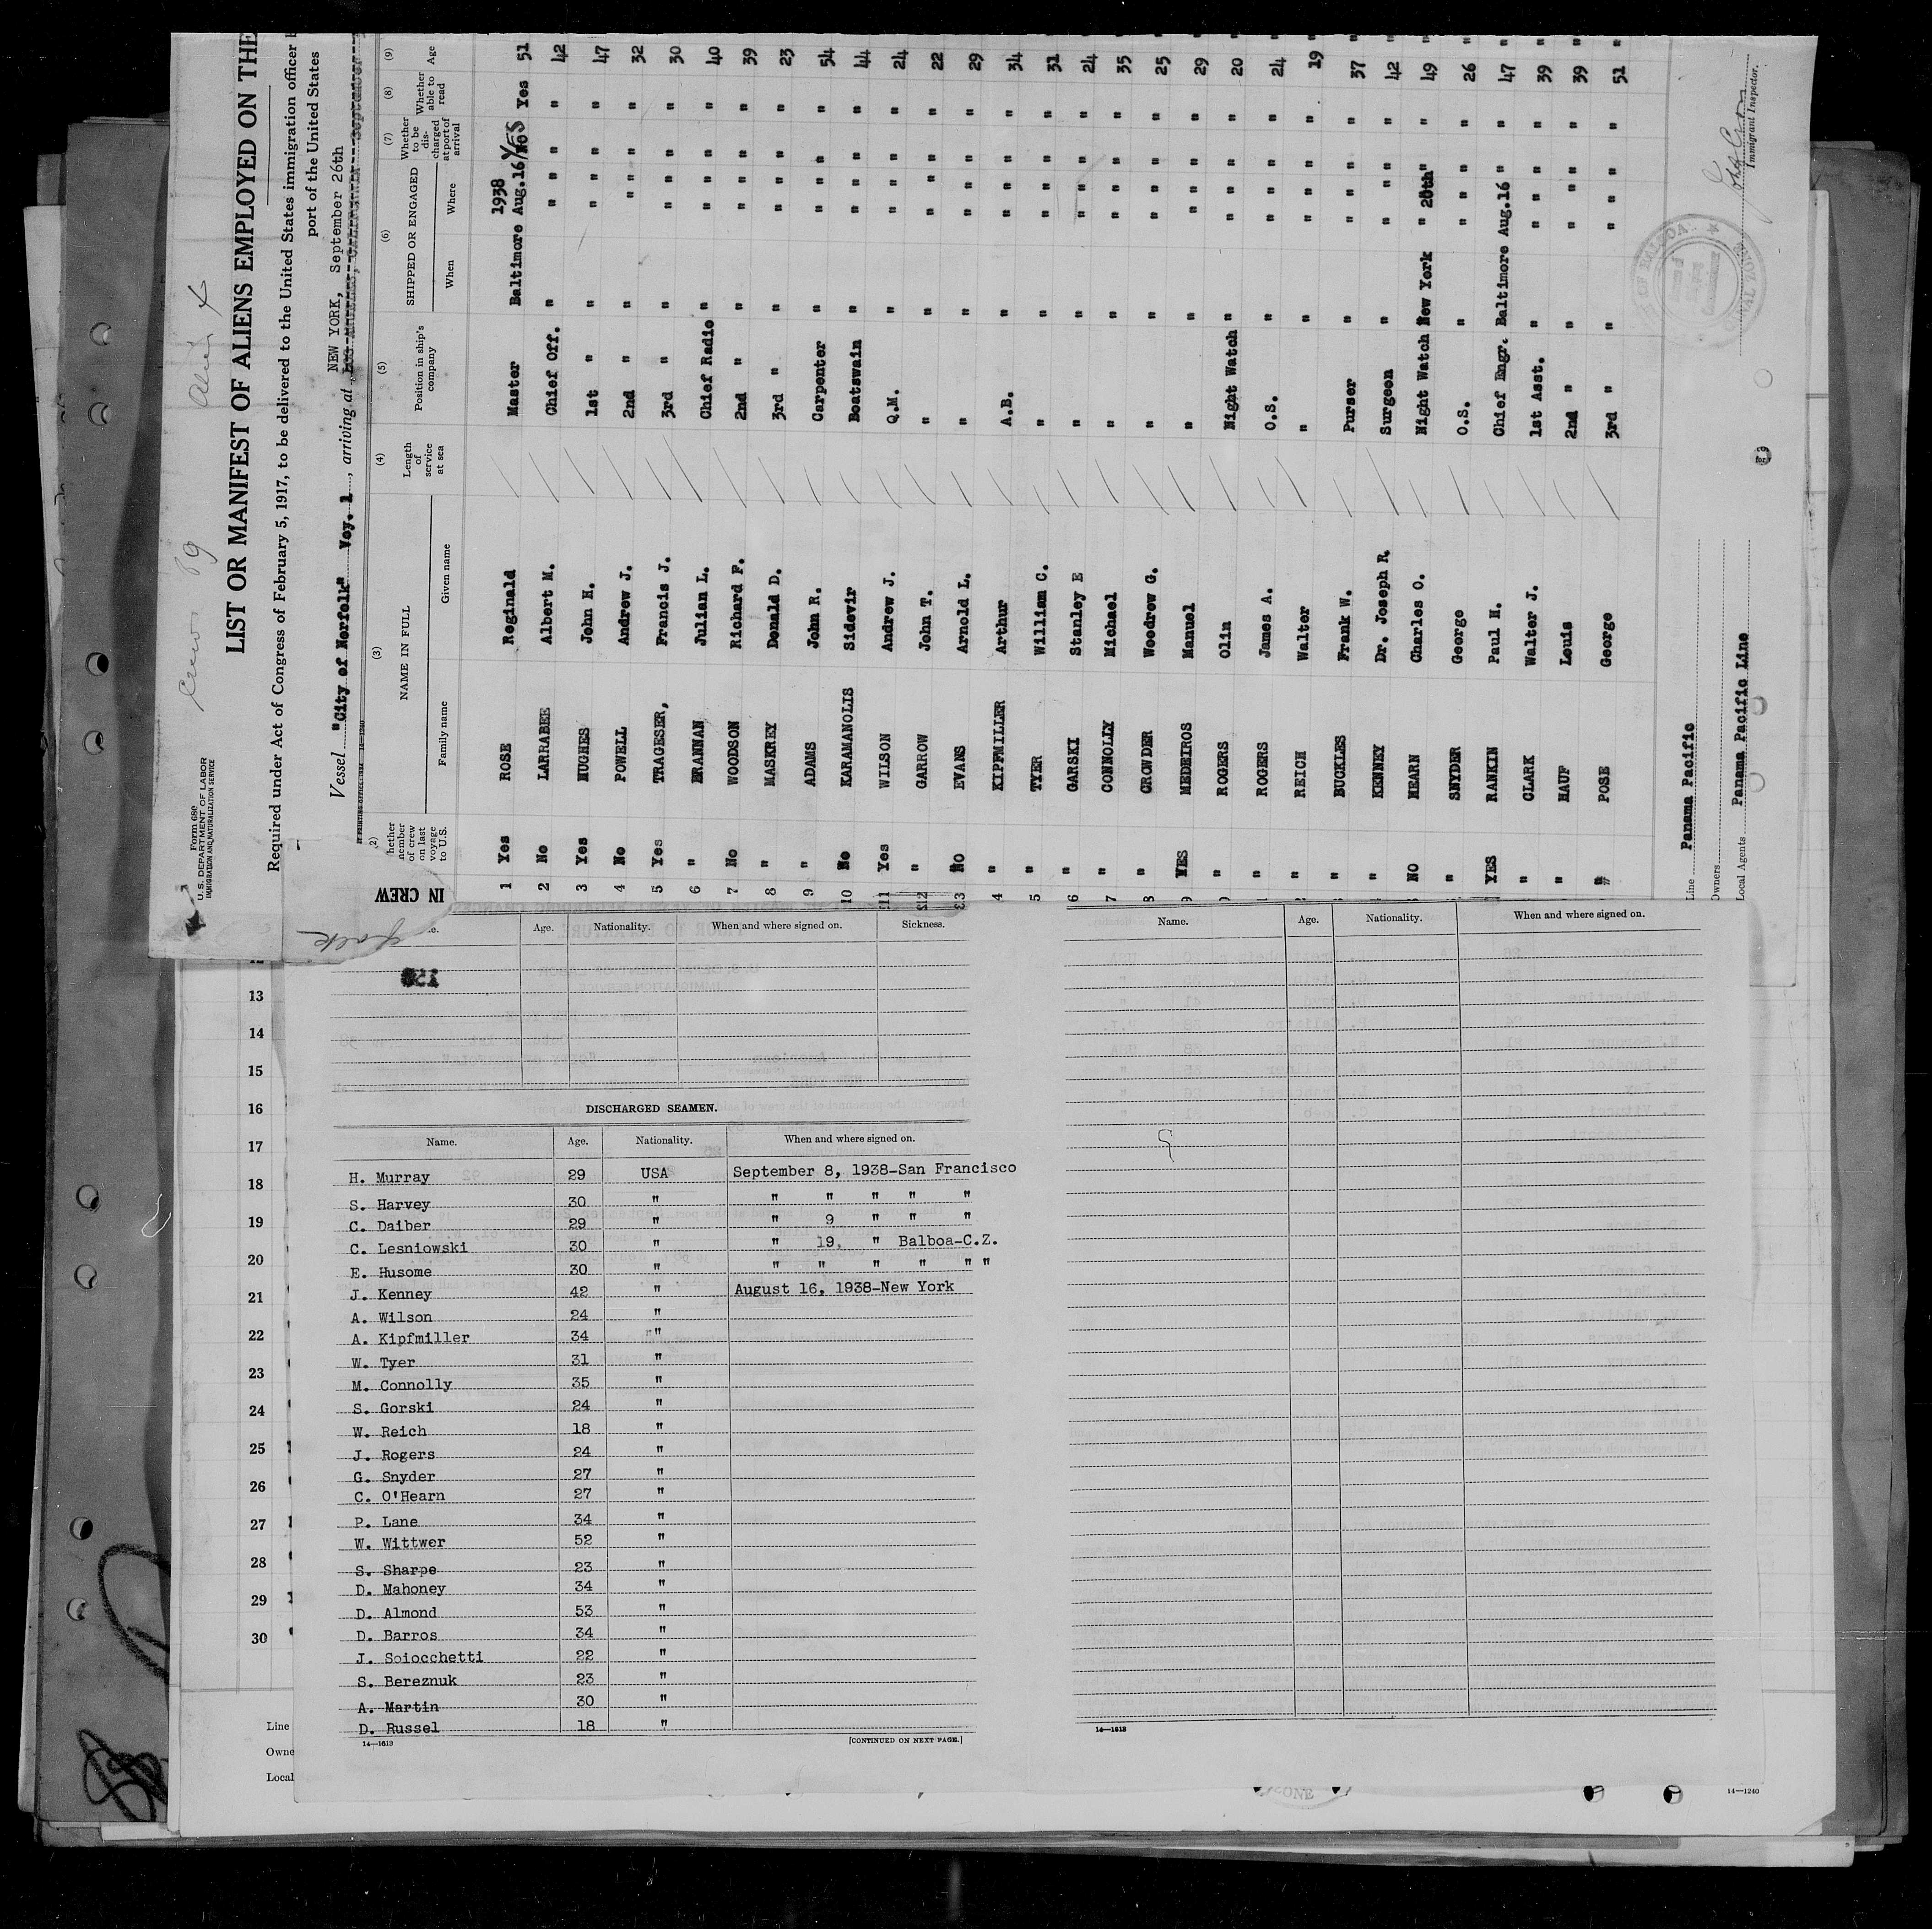 Form 680
U. S. DEPARTMENT OF LABOR
IMMIGRATION AND NATURALIZATION SERVICE
LIST OR MANIFEST OF ALIENS EMPLOYED ON THE
Required under Act of Congress of February 5, 1917, to be delivered to the United States immigration officer
port of the United States
NEW YORK, September 26th
Vessel "City of Norfolk" Voy. 1, arriving at
(2) (3) (4) (5) (6) (7) (8) (9)
hether member of crew on last voyage to U.S. NAME IN FULL Length of service at sea Position in ship's company SHIPPED OR ENGAGED Whether to be discharged at port of arrival Whether able to read Age
Family name Given name When Where
IN CREW
1938
1 Yes ROSE Reginald Master Baltimore Aug.16 YES Yes 51
2 No LARRABEE Albert M. Chief Off. " " " " " 42
3 Yes HUGHES John H. 1st " " " " " " 47
4 No POWELL Andrew J. 2nd " " " " " " 32
5 Yes TRAGESER, Francis J. 3rd " " " " " " 30
6 " BRANNAN Julian L. Chief Radio " " " " " 40
7 No WOODSON Richard F. 2nd " " " " " " 39
8 " MASKREY Donald D. 3rd " " " " " " 23
9 " ADAMS John R. Carpenter " " " " " 54
10 No KARAMANOLIS Sidevir Boatswain " " " " " 44
11 Yes WILSON Andrew J. Q.M. " " " " " 24
12 " GARROW John T. " " " " " " 22
3 NO EVANS Arnold L. " " " " " " 29
4 " KIPFMILLER Arthur A.B. " " " " " 34
5 " TYER William C. " " " " " " 31
6 " GARSKI Stanley E " " " " " " 24
7 " CONNOLLY Michael " " " " " " 35
8 " CROWDER Woodrow G. " " " " " " 25
9 YES MEDEIROS Manuel " " " " " " 29
" ROGERS Olin Night Watch " " " " " 20
" ROGERS James A. O.S. " " " " " 24
" REICH Walter " " " " " " 19
" BUCKLES Frank W. Purser " " " " " 37
" KENNEY Dr. Joseph R. Surgeon " " " " " 42
NO HEARN Charles O. Night Watch New York " 20th " " 49
" SNYDER George O.S. " " " " " 26
YES RANKIN Paul H. Chief Engr. Baltimore Aug.16 " " 47
" CLARK Walter J. 1st Asst. " " " " " 39
" HAUF Louis 2nd " " " " " " 39
" POSE George 3rd " " " " " " 51
Line Panama Pacific
Owners
Local Agents Panama Pacific Line
Immigrant Inspector.
Age. Nationality. When and where signed on. Sickness.
DISCHARGED SEAMEN.
Name. Age. Nationality. When and where signed on.
H. Murray 29 USA September 8, 1938-San Francisco
S. Harvey 30 " " " " " "
C. Daiber 29 " " 9 " " "
C. Lesniowski 30 " " 19, " Balboa-C.Z.
E. Husome 30 " " " " " " "
J. Kenney 42 " August 16, 1938-New York
A. Wilson 24 "
A. Kipfmiller 34 "
W. Tyer 31 "
M. Connolly 35 "
S. Gorski 24 "
W. Reich 18 "
J. Rogers 24 "
G. Snyder 27 "
C. O'Hearn 27 "
P. Lane 34 "
W. Wittwer 52 "
S. Sharpe 23 "
D. Mahoney 34 "
D. Almond 53 "
D. Barros 34 "
J. Soiocchetti 22 "
S. Bereznuk 23 "
A. Martin 30 "
D. Russel 18 "
14—1613 [CONTINUED ON NEXT PAGE.]
Name. Age. Nationality. When and where signed on.
14—1613
13
14
15
16
17
18
19
20
21
22
23
24
25
26
27
28
29
30
Line
Owne
Local
ZONE
14—1240